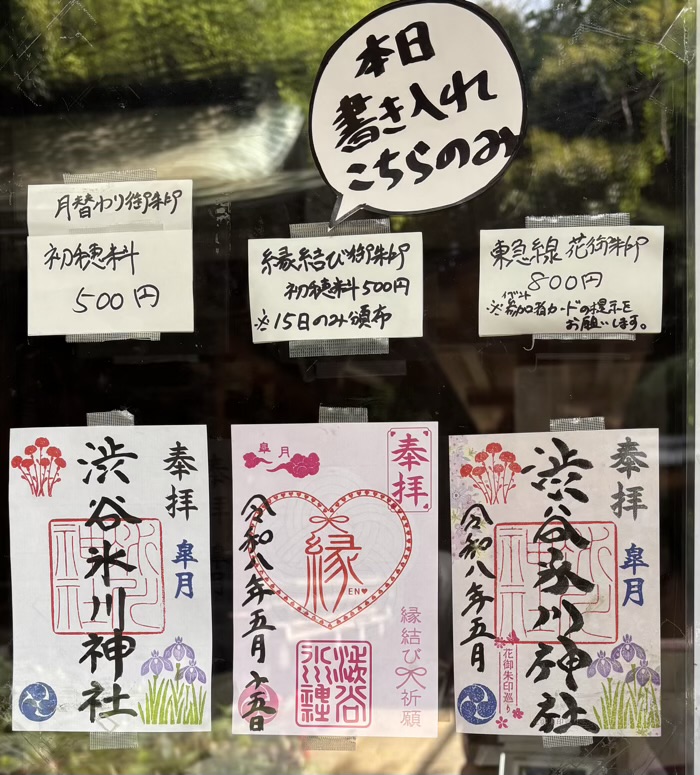 本日
書き入れ
こちらのみ
月替わり御朱印
初穂料
500円
縁結び御朱印
初穂料500円
※15日のみ頒布
東急線 花御朱印
800円
イベント
※参加者カードの提示を
お願いします。
奉拝
皐月
渋谷氷川神社
皐月
奉拝
縁
EN
縁結び祈願
令和八年五月十五日
渋谷氷川神社
奉拝
皐月
渋谷氷川神社
令和八年五月
花御朱印巡り